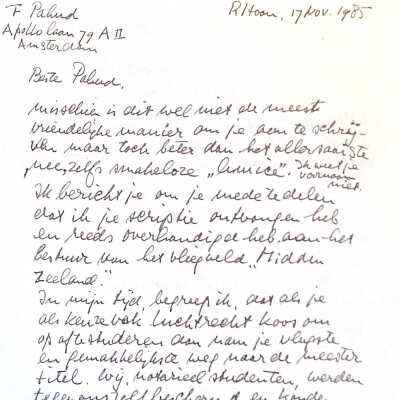 F Palud
Apollolaan 79 A II
Amsterdam
R'Hoon, 17 Nov. 1985
Beste Palud,
misschien is dit wel niet de meest
vriendelijke manier om je aan te schrij-
ven maar toch beter dan het allersaaiste
zelfs smakeloze „ ". Ik weet je
voornaam
niet.
Ik bericht je om je mede te delen
dat ik je scriptie ontvangen heb
en reeds overhandigd heb aan het
bestuur van het vliegveld „Midden
Zeeland."
In mijn tijd, begreep ik, dat als je
als keuzevak luchtrecht koos om
op af te studeren dan nam je vlugste
en gemakkelijkste weg naar de meester
titel. Wij, notarieel studenten, werden